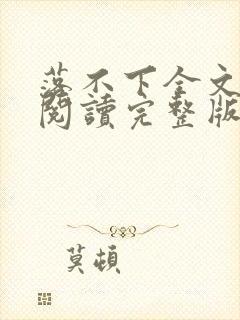 落不下全文
閱讀完整版
莫頓